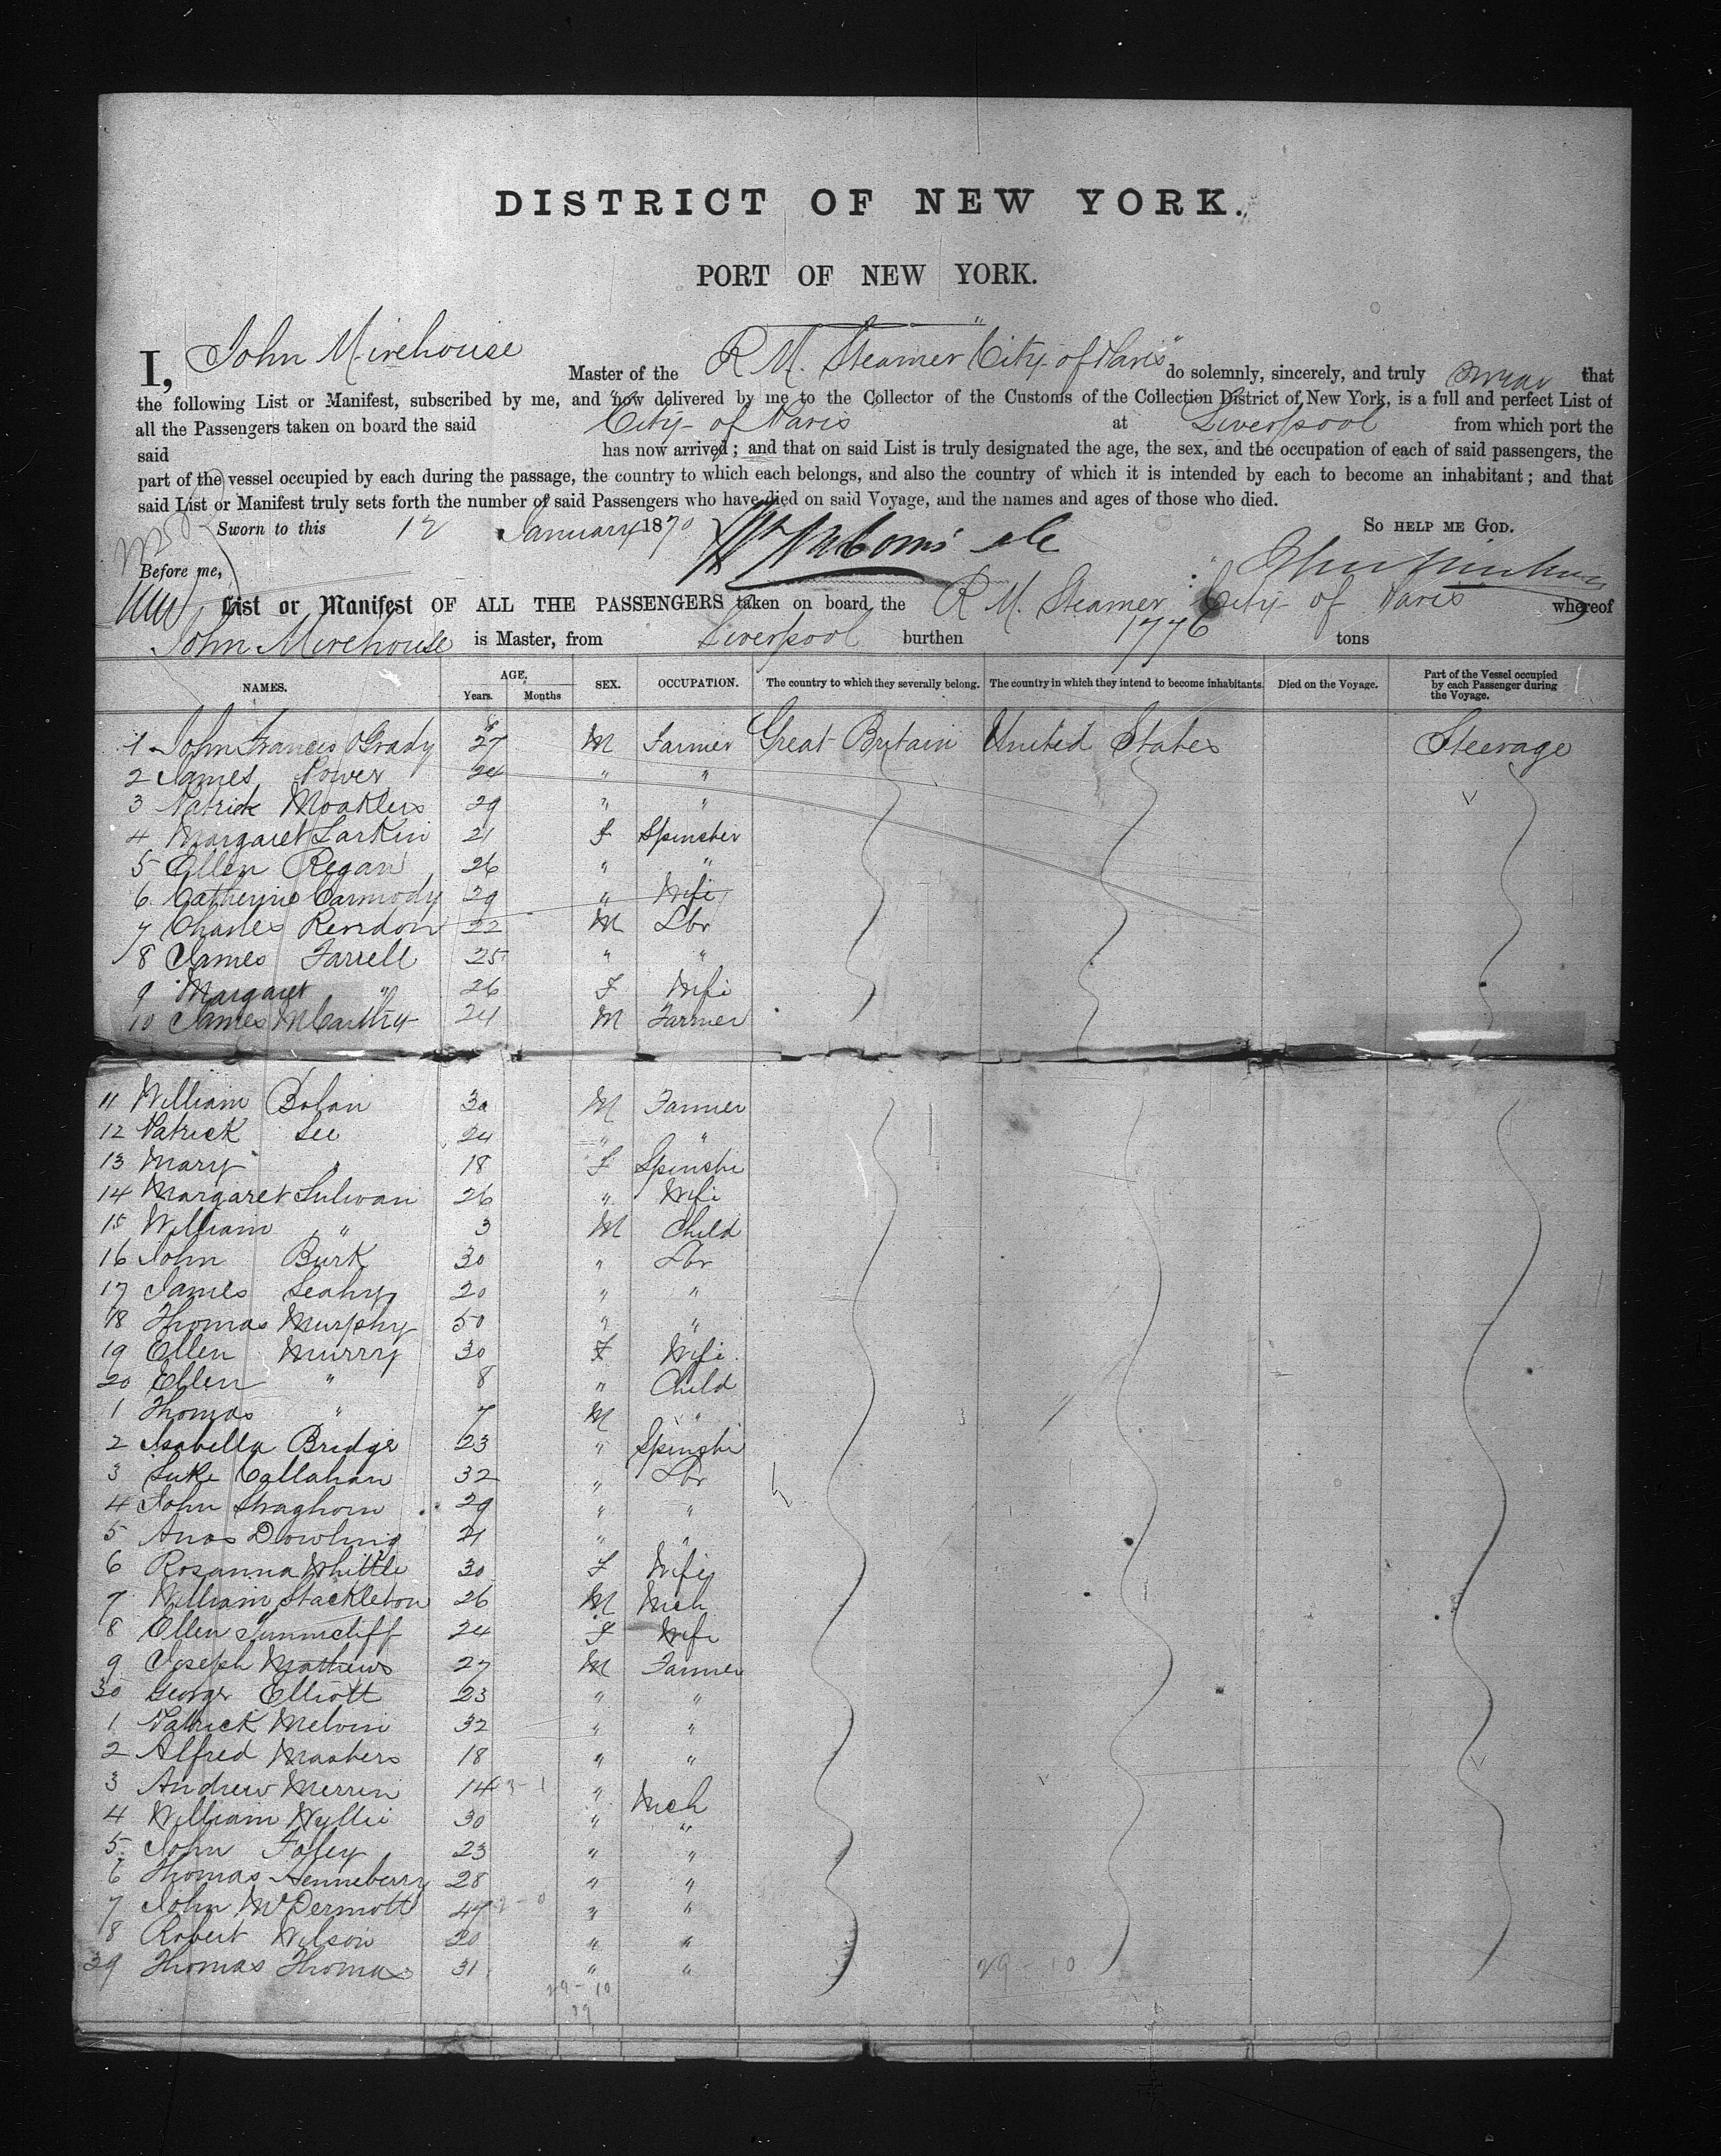 DISTRICT OF NEW YORK.
PORT OF NEW YORK.
I, John Mirehouse Master of the R M. Steamer "City of Paris" do solemnly, sincerely, and truly swear that
the following List or Manifest, subscribed by me, and now delivered by me to the Collector of the Customs of the Collection District of New York, is a full and perfect List of
all the Passengers taken on board the said City of Paris at Liverpool from which port the
said has now arrived; and that on said List is truly designated the age, the sex, and the occupation of each of said passengers, the
part of the vessel occupied by each during the passage, the country to which each belongs, and also the country of which it is intended by each to become an inhabitant; and that
said List or Manifest truly sets forth the number of said Passengers who have died on said Voyage, and the names and ages of those who died.
Sworn to this 12 January 1870 So HELP ME GOD.
Before me,
List or Manifest OF ALL THE PASSENGERS taken on board the R M. Steamer City of Paris whereof
John Mirehouse is Master, from Liverpool burthen 1776 tons
NAMES. AGE. Years. Months SEX. OCCUPATION. The country to which they severally belong. The country in which they intend to become inhabitants. Died on the Voyage. Part of the Vessel occupied by each Passenger during the Voyage.
1 John Francis OGrady 27 M Farmer Great Britain United States Steerage
2 James Power 24 " "
3 Patrick Moaklers 29 " "
4 Margaret Larkin 21 f Spinster
5 Ellen Regan 26 " "
6 Catherine Carmody 29 " Wife
7 Charles Reardon 22 M Lbr
8 James Farrell 25 " "
9 Margaret " 26 F Wife
10 James McCarthy 24 M Farmer
11 William Bolan 30 M Farmer
12 Patrick Lee 24 " "
13 Mary " 18 F Spinster
14 Margaret Sulivan 26 " Wife
15 William " 3 M Child
16 John Burk 30 " Lbr
17 James Leahy 20 " "
18 Thomas Murphy 50 " "
19 Ellen Murry 30 F Wife
20 Ellen " 8 " Child
1 Thomas " 7 M "
2 Isabella Bridge 23 " Spinster
3 Luke Callahan 32 " Lbr
4 John Straghorn 29 " "
5 Dowling 21 " "
6 Rosanna Whittle 30 F Wife
7 William Stackleton 26 M Mech
8 Ellen Sunnicliff 24 F Wife
9 Joseph Mathews 27 M Farmer
30 George Elliott 23 " "
1 Patrick Melvin 32 " "
2 Alfred Mashers 18 " "
3 Andrew Merrin 14 " Mech
4 William Wyllie 30 " "
5 John Foley 23 " "
6 Thomas Henneberry 28 " "
7 John McDermott 47 " "
8 Robert Wilson 20 " "
39 Thomas Thomas 31 " "
29-10 29-10
39